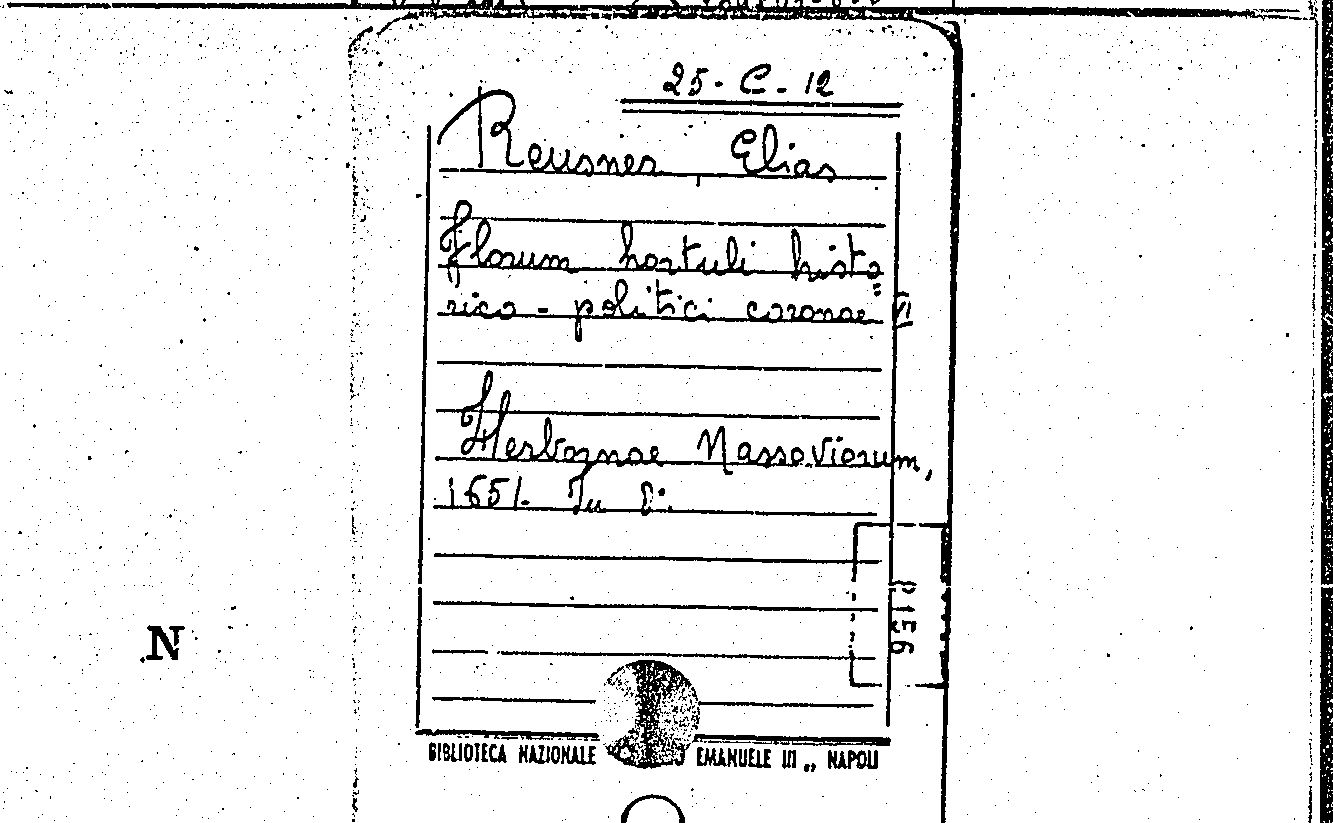 25 - C - 12
Reusner, Elias
Florum hortuli histo=
rico - politici coronae VI
Herbornae Nassoviorum,
1651. In 8°.
N
BIBLIOTECA NAZIONALE EMANUELE III „ NAPOLI